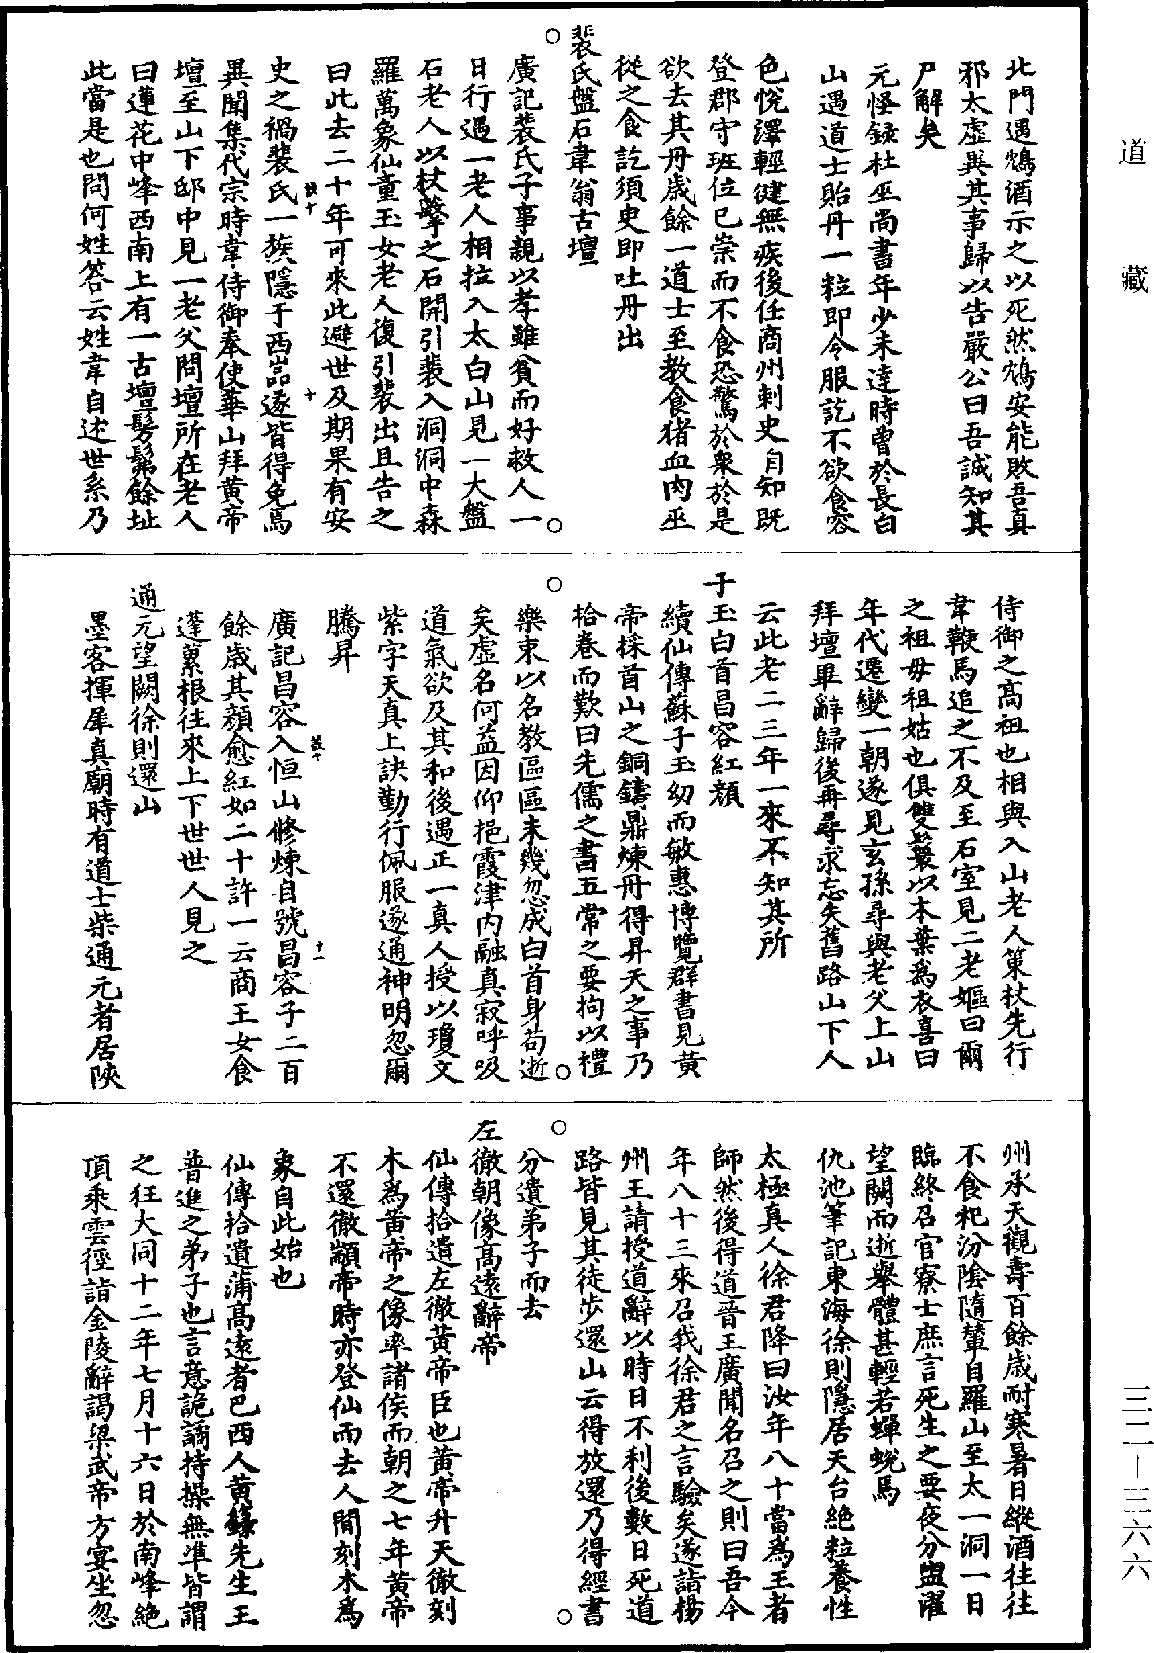 道藏
三二—三六六
北門遇鴆酒示之以死然鴆安能敗吾真
邪太虛與其事歸以告嚴公曰吾誠知其
尸解矣
元怪錄杜巫尚書年少未達時曾於長白
山遇道士貽丹一粒即令服訖不欲食容
色悅澤輕健無疾後任商州刺史自知既
登郡守班位已崇而不食恐驚於衆於是
欲去其丹歲餘一道士至教食猪血肉巫
從之食訖須臾即吐丹出
裴氏盤石韋翁古壇
廣記裴氏子事親以孝雖貧而好救人一
日行遇一老人相拉入太白山見一大盤
石老人以杖擊之石開引裴入洞洞中森
羅萬象仙童玉女老人復引裴出且告之
曰此去二十年可來此避世及期果有安
史之禍裴氏一族隱于西嵓遂皆得免焉
異聞集代宗時韋侍御奉使華山拜黃帝
壇至山下邸中見一老父問壇所在老人
曰蓮花中峰西南上有一古壇髣髴餘址
此當是也問何姓答云姓韋自述世系乃
侍御之高祖也相與入山老人策杖先行
韋鞭馬追之不及至石室見二老嫗曰爾
之祖母祖姑也俱雙鬟以木葉爲衣喜曰
年代遷變一朝遂見玄孫尋與老父上山
拜壇畢辭歸後再尋求忘失舊路山下人
云此老二三年一來不知其所
子玉白首昌容紅顏
續仙傳蘇子玉幼而敏惠博覽群書見黃
帝採首山之銅鑄鼎煉丹得昇天之事乃
拾卷而歎曰先儒之書五常之要拘以禮
樂束以名教區區未幾忽成白首身苟逝
矣虛名何益因仰挹霞津內融真寂呼吸
道氣欲及其和後遇正一真人授以瓊文
紫字天真上訣勤行佩服遂通神明忽爾
騰昇
廣記昌容入恒山修煉自號昌容子二百
餘歲其顏愈紅如二十許一云商王女食
蓬虆根往來上下世世人見之
通元望闕徐則還山
墨客揮犀真廟時有道士柴通元者居陝
州承天觀壽百餘歲耐寒暑日縱酒往往
不食祀汾陰隨輦自羅山至太一洞一日
臨終召官寮士庶言死生之要夜分盥濯
望闕而逝舉體甚輕若蟬蛻焉
仇池筆記東海徐則隱居天台絶粒養性
太極真人徐君降曰汝年八十當爲王者
師然後得道晉王廣聞名召之則曰吾今
年八十三來召我徐君之言驗矣遂詣楊
州王請授道辭以時日不利後數日死道
路皆見其徒步還山云得放還乃得經書
分遺弟子而去
左徹朝像高遠辭帝
仙傳拾遺左徹黃帝臣也黃帝升天徹刻
木爲黃帝之像率諸侯而朝之七年黃帝
不還徹顓帝時亦登仙而去人間刻木爲
象自此始也
仙傳拾遺蒲高遠者巴西人黃籙先生王
普進之弟子也言意詭譎持操無準皆謂
之狂大同十二年七月十六日於南峰絶
頂乘雲徑詣金陵辭謁梁武帝方宴坐忽